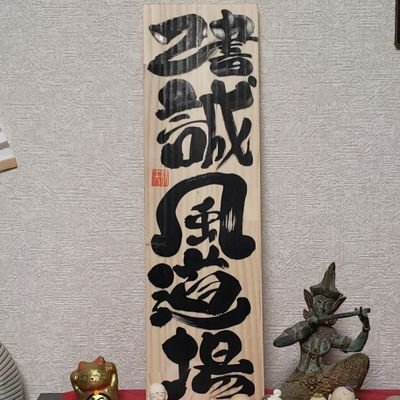 己書誠風道場